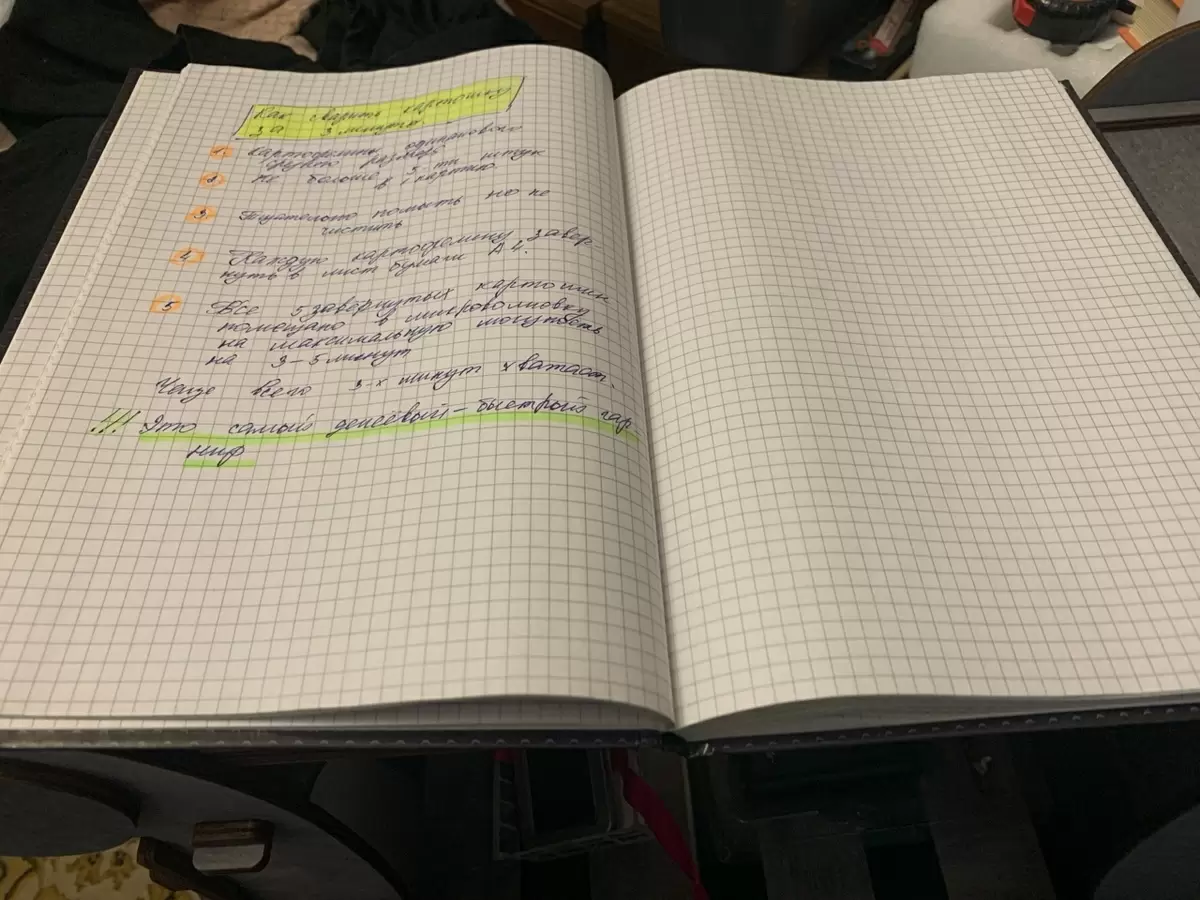 Как сварить картошку
за 3 минуты.
1. Картофелины одинакового
другого размера
2. Не больше 5-ти штук
в 1 партию
3. Тщательно помыть но не
чистить
4. Каждую картофелину завер
нуть в лист бумаги А4.
5 Все 5 завёрнутых картошин
помещаю в микроволновку
на максимальную мощность
на 3-5 минут
Чаще всего 3-х минут хватает.
!!! Это самый дешёвый - быстрый гар
нир